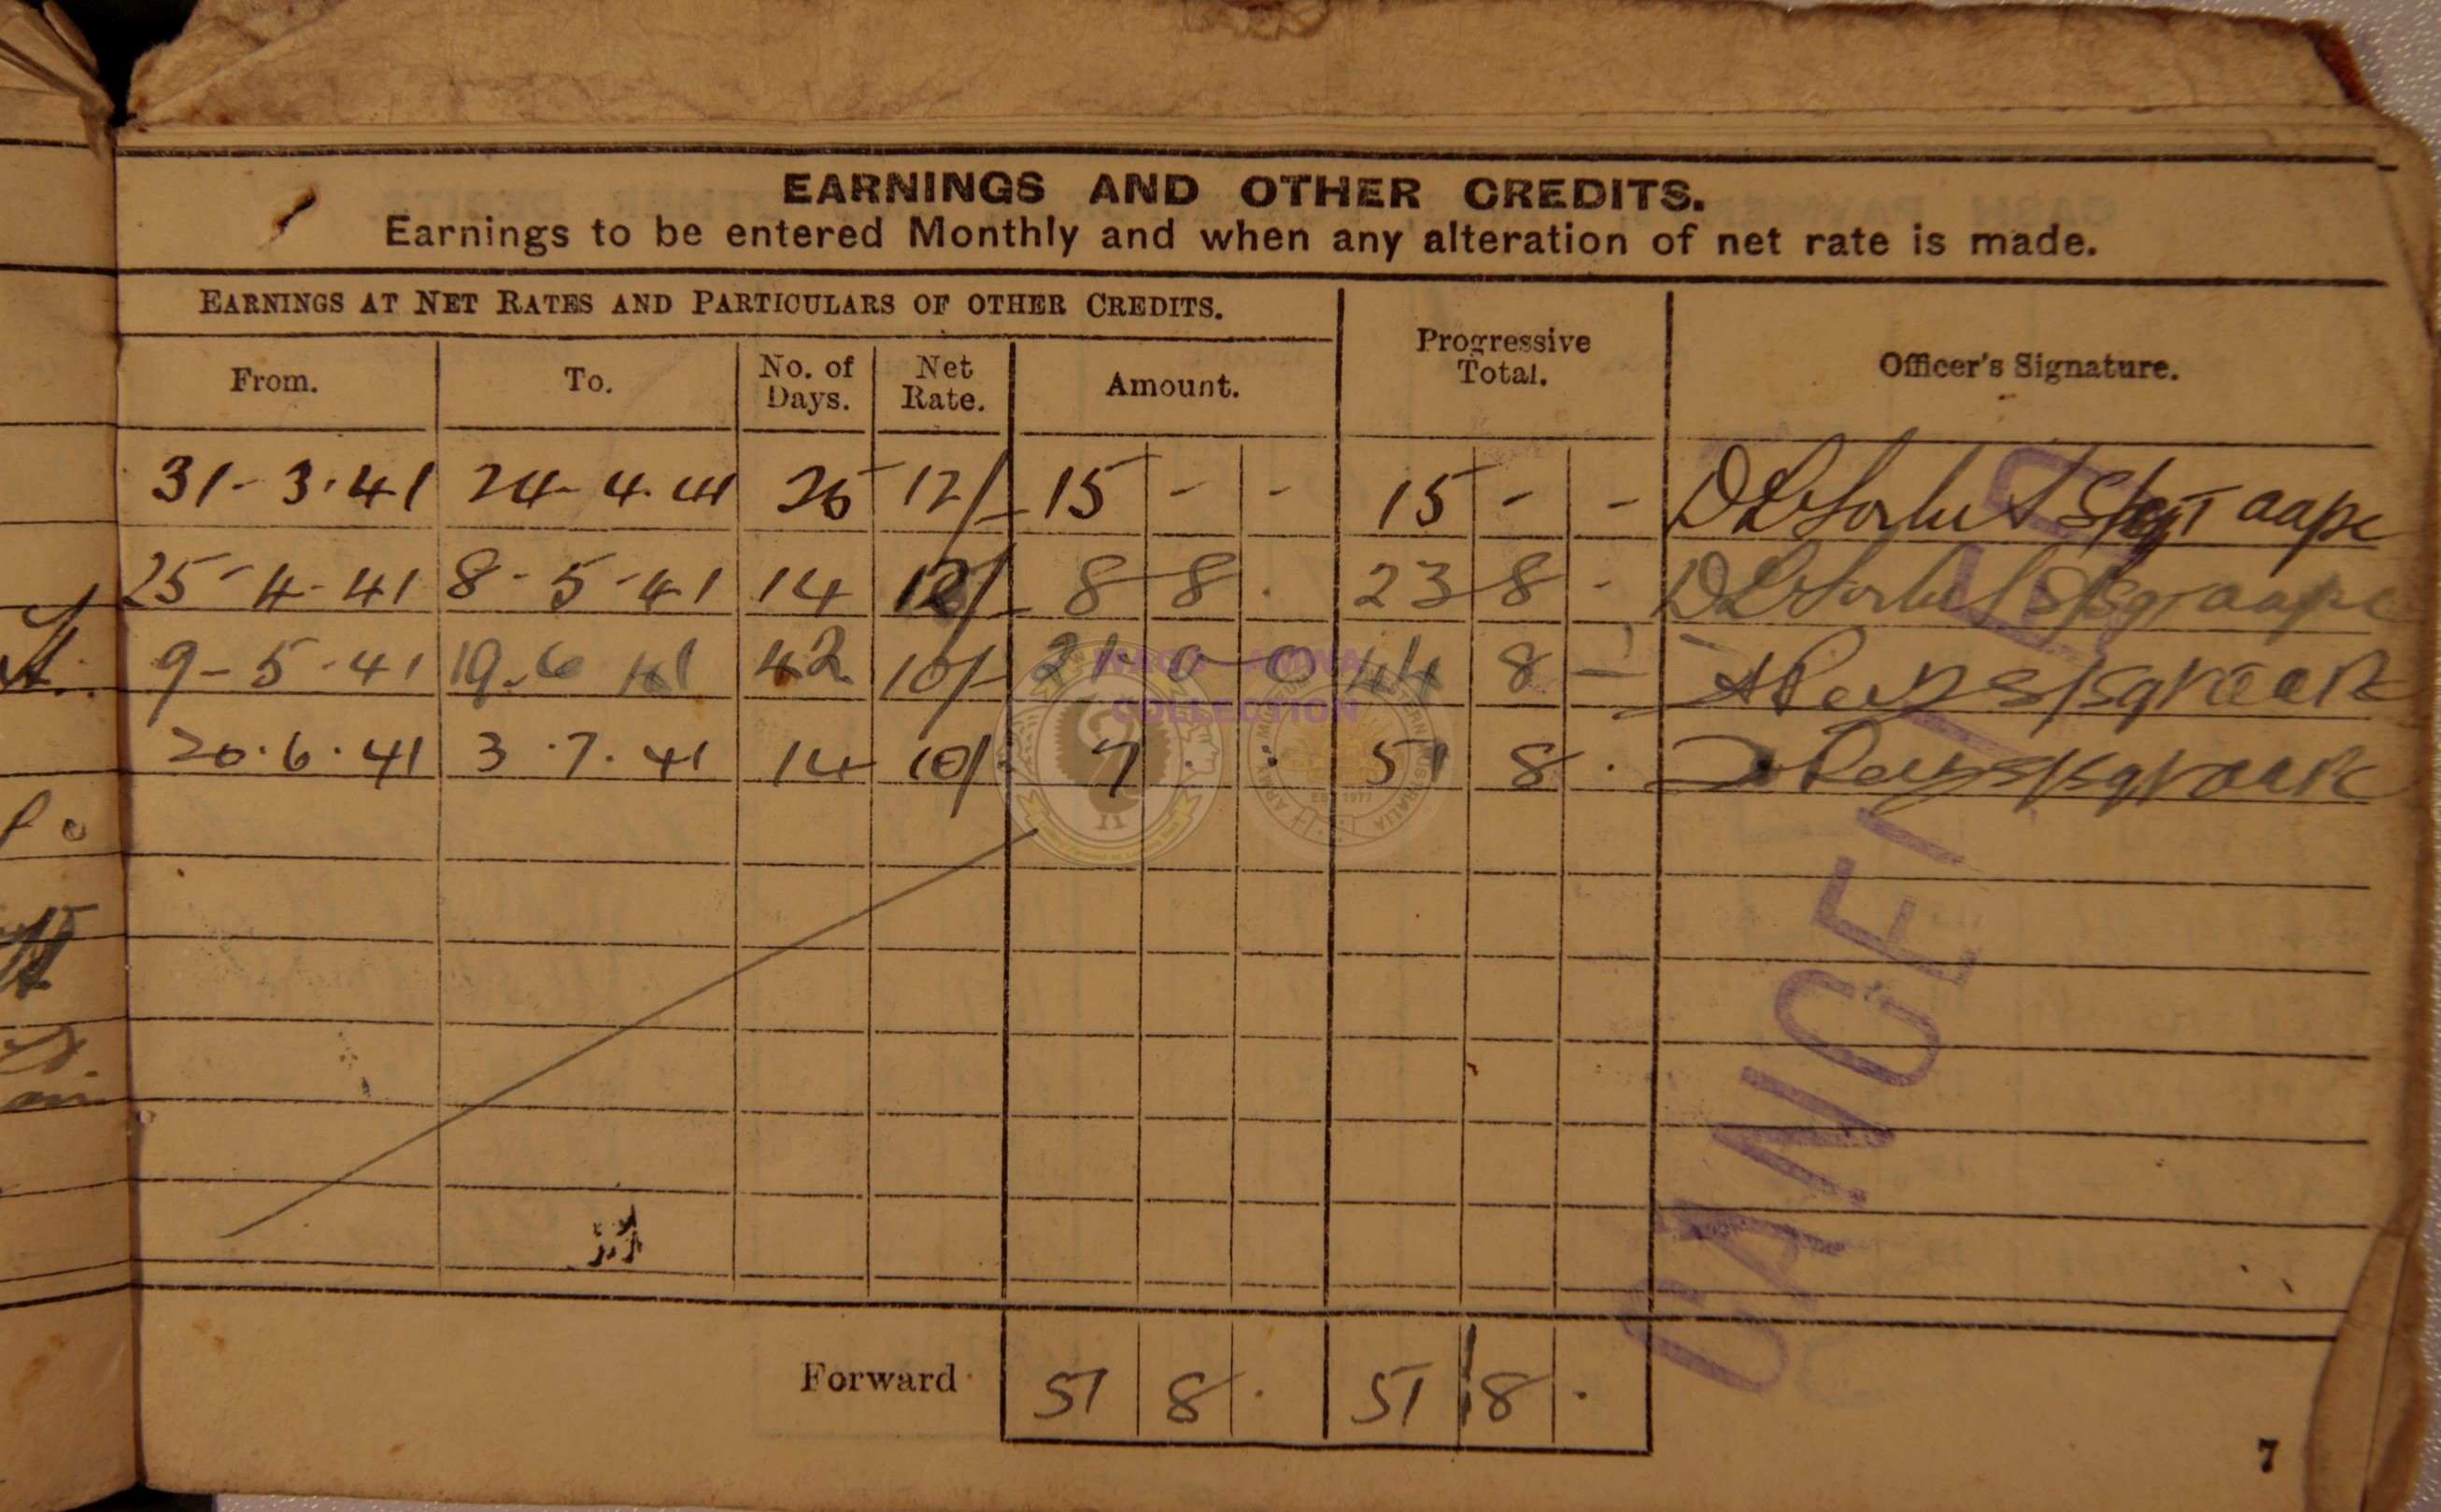 EARNINGS AND OTHER CREDITS.
Earnings to be entered Monthly and when any alteration of net rate is made.
EARNINGS AT NET RATES AND PARTICULARS OF OTHER CREDITS.
Progressive Total.
Officer's Signature.
From. To. No. of Days. Net Rate. Amount.
31-3.41 24-4.41 25 12/- 15 - - 15 - - S/Sgt aapc
25-4-41 8-5-41 14 12/- 8 8 . 23 8 - S/Sgt aapc
9-5-41 19.6 41 42 10/- 21 0 0 44 8 - S/Sgt
20.6.41 3.7.41 14 10/- 7 . . 51 8 . S/Sgt
COLLECTION
CANCELLED
Forward 51 8 . 51 8 .
7